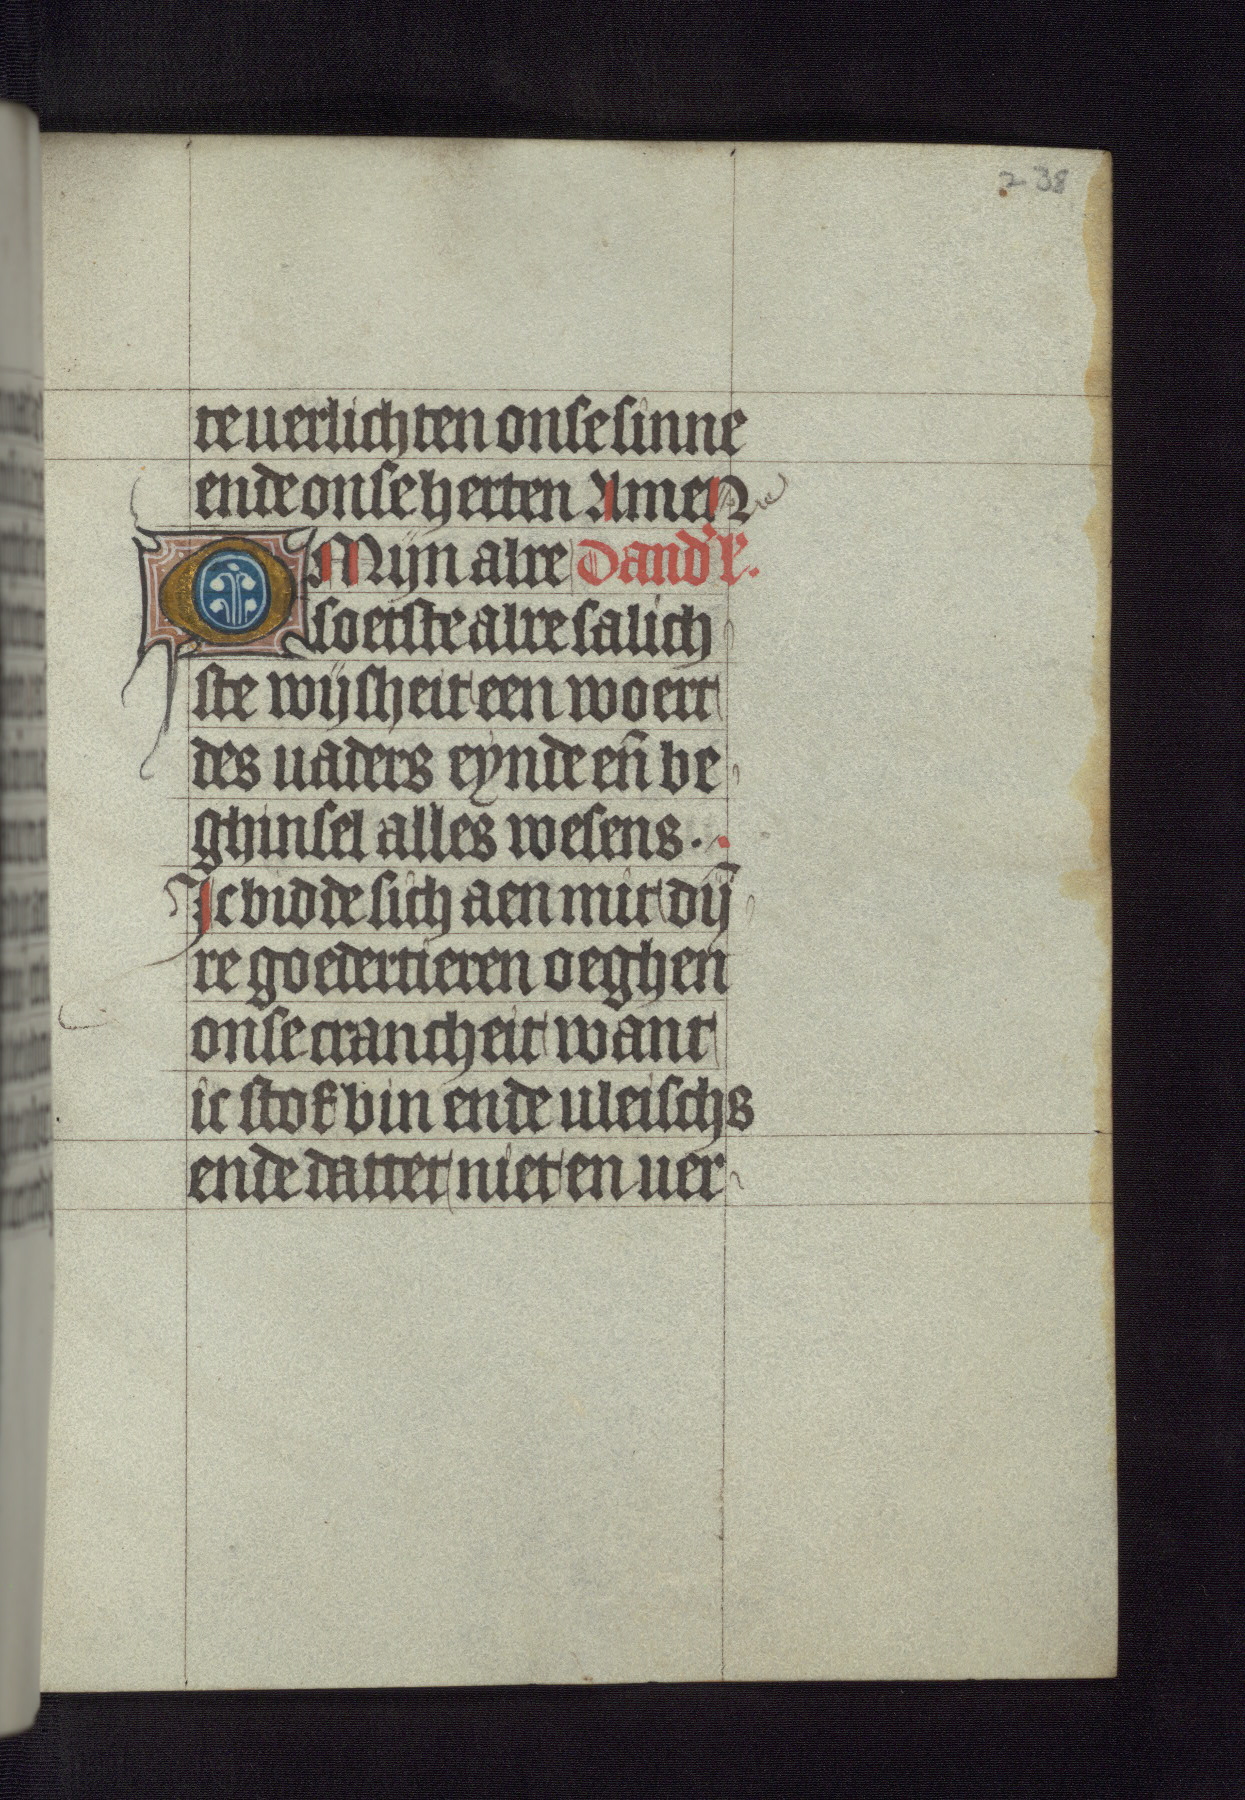 238
te uerlichten onse sinne
ende onse herten Amen
O Mijn alre Dand'r.
soetste alre salich
ste wijsheit een woert
des uaders eynde en̄ be
ghinsel alles wesens .
Ic bidde sich aen mit dij̄
re goedertieren oeghen
onse crancheit want
ic stof bin ende uleischs
ende dattet niet en uer